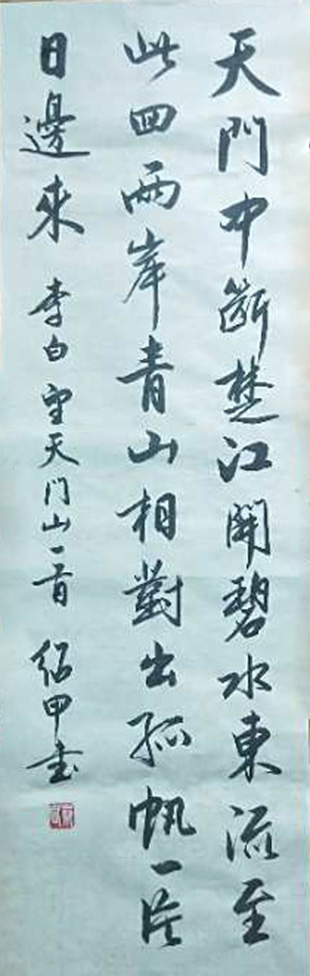 天門中斷楚江開碧水東流至
此回兩岸青山相對出孤帆一片
日邊來 李白望天门山一首 紹甲书